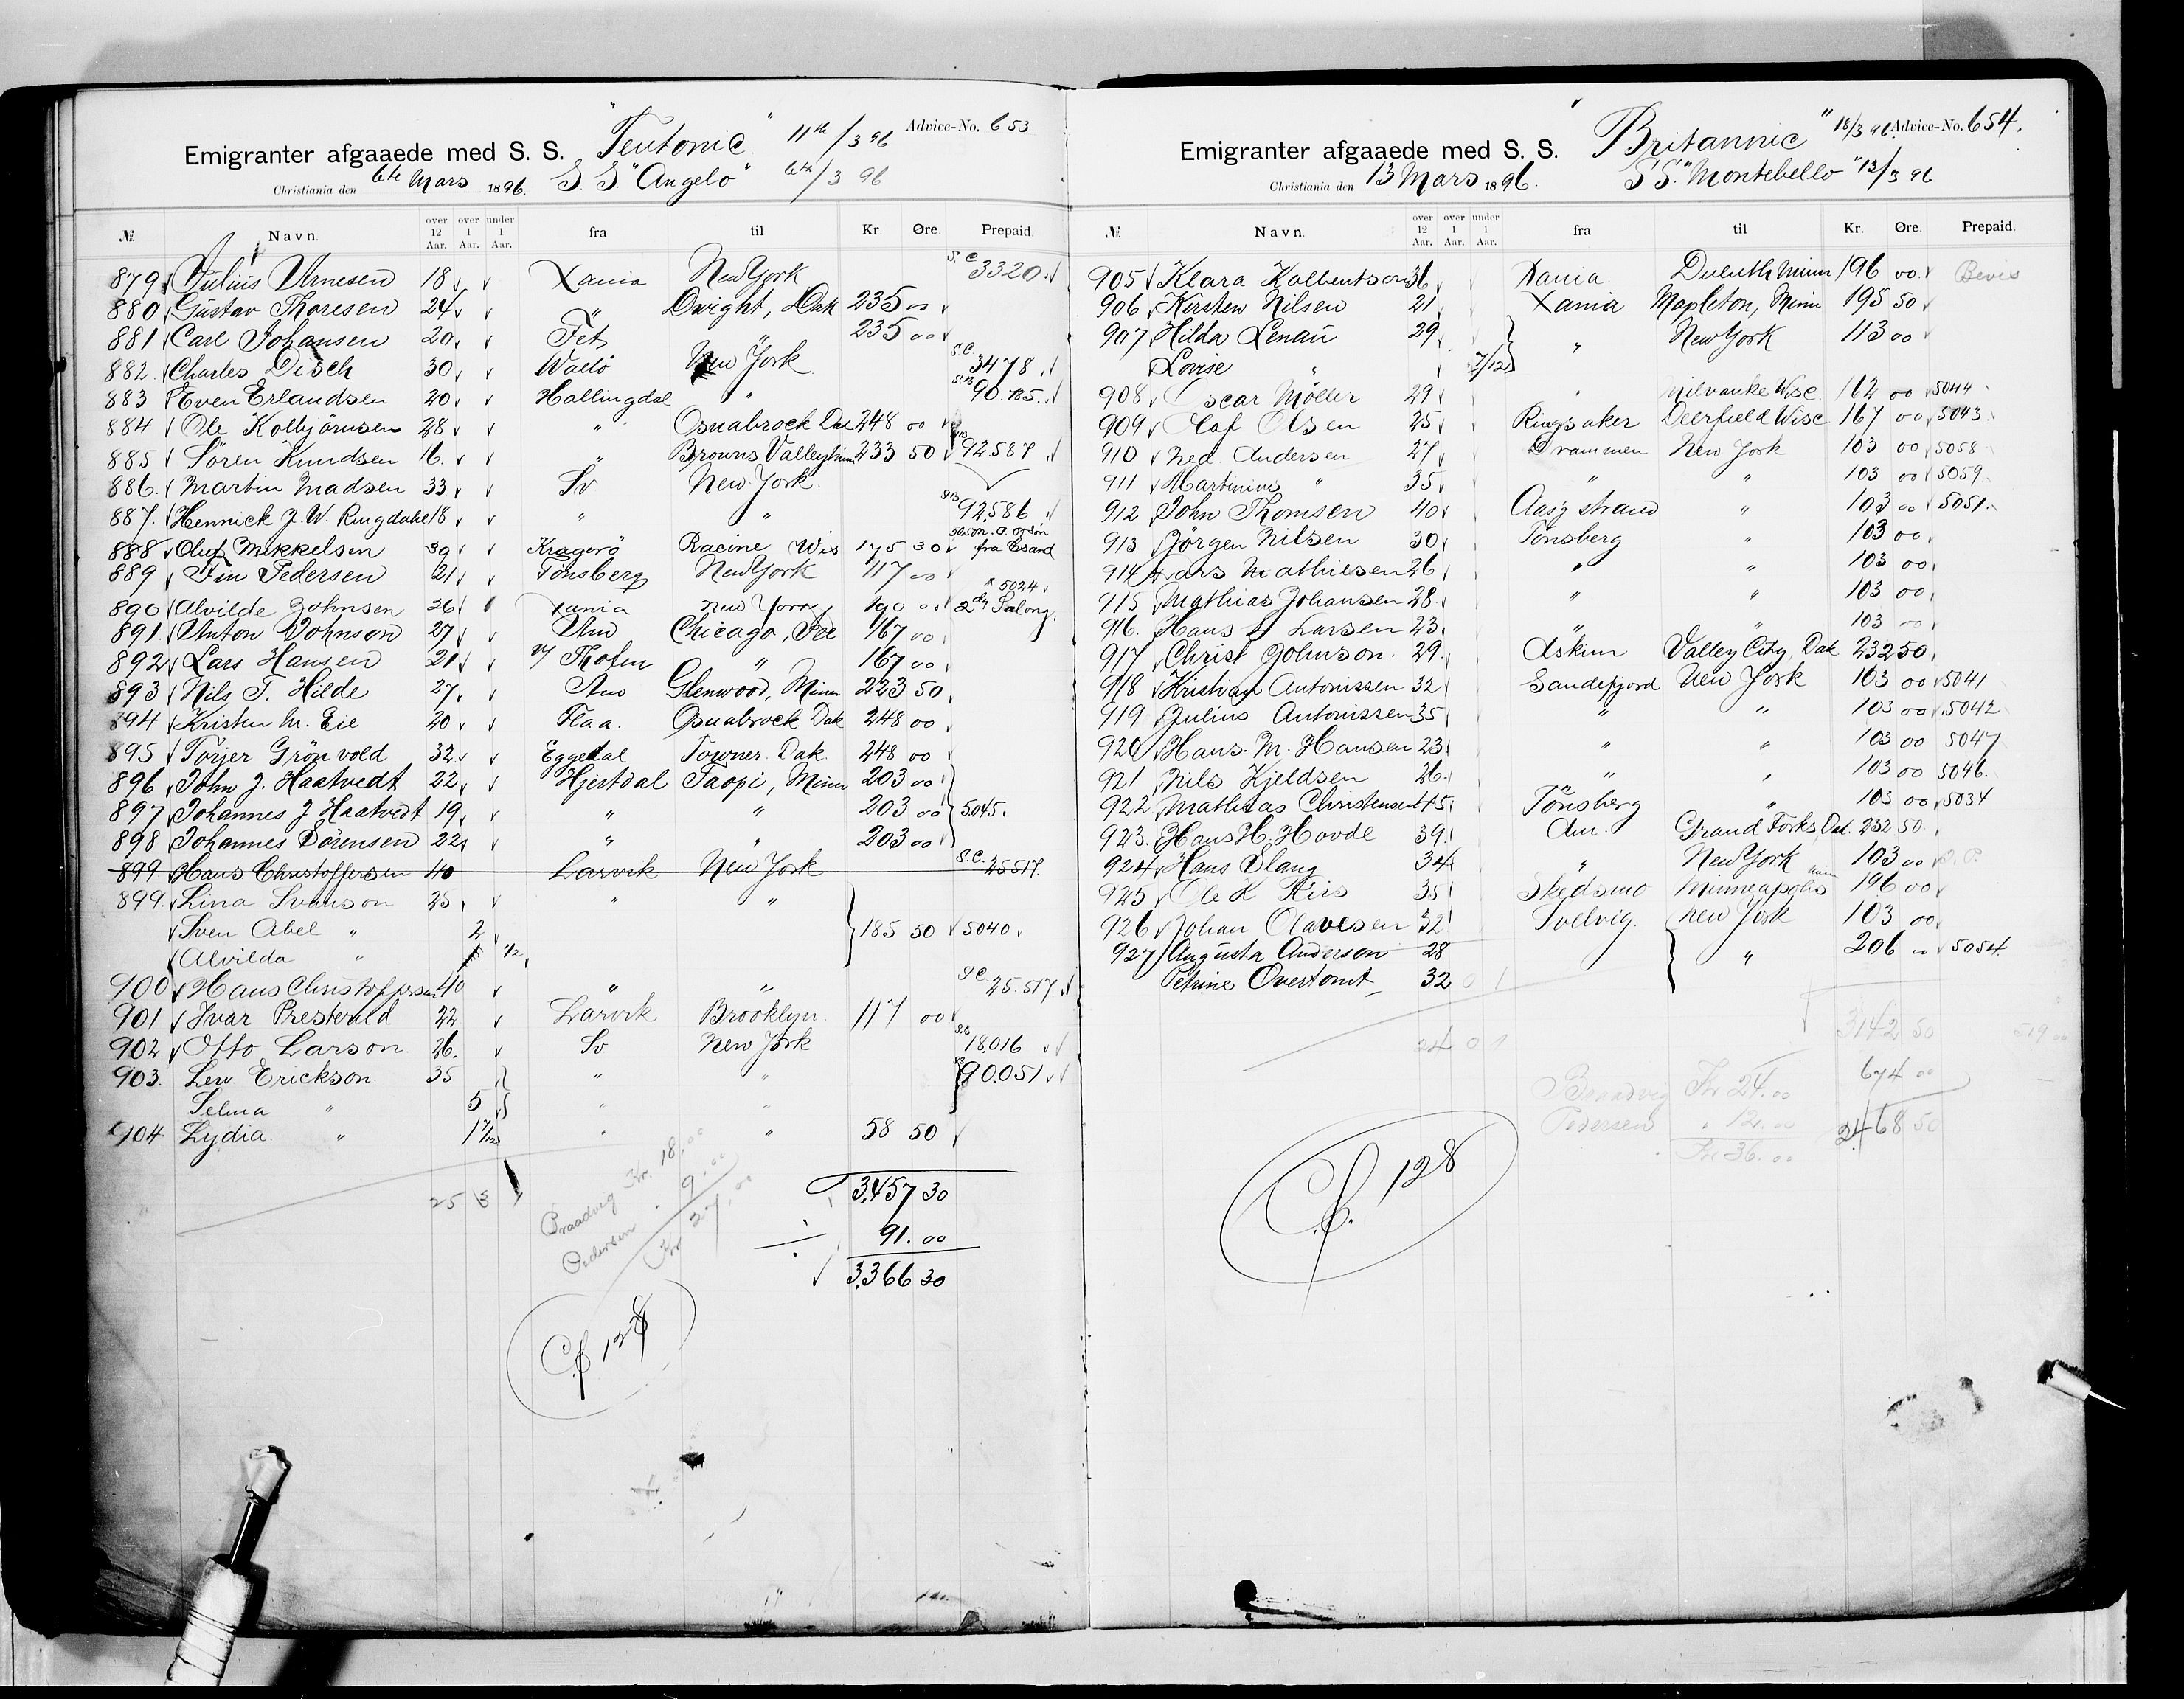 Advice-No. 653
Emigranter afgaaede med S. S. "Teutonic" 11th/3 96
Christiania den 6te Mars 1896. S. S. "Angelo" 6th/3 96
№ Navn. over 12 Aar. over 1 Aar. under 1 Aar. fra til Kr. Øre. Prepaid.
879 Julius Arnesen 18 Xania New York S.C. 3320
880 Gustav Thoresen 24 " Dwight, Dak 235 00
881 Carl Johansen 20 Fet " 235 00
882 Charles Disch 30 Wallö New York S.C. 3478
883 Even Erlandsen 20 Hallingdal " S.B. 90.785
884 Ole Kolbjörnsen 28 " Osnabrock Dak 248 00
885 Sören Knudsen 16 " Browns Valley Minn 233 50 92.587
886. Martin Madsen 33 Sv New York.
887. Hennick J. W. Ringdahl 18 " " SB 92.586
888 Oluf Mikkelsen 39 Kragerö Racine Wis 175 30
889 Fin Pedersen 21 Tönsberg New York 117 00
890 Alvilde Johnsen 26 Xania New York 190 00 * 5024 2den Salong.
891. Anton Johnson 27 Am Chicago, Ill 167 00
892 Lars Hansen 21 " 167 00
893 Nils T. Hilde 27 Am Glenwood, Minn 223 50
894 Kristen M. Eie 20 Flaa. Osnabrock Dak 248 00
895 Torjer Grönvold 32 Eggedal Towner. Dak. 248 00
896 John J. Haatvedt 22 Hjertdal Taopi, Minn 203 00
897 Johannes J Haatvedt 19 " " 203 00 5045.
898 Johannes Sörensen 22 " " 203 00
899 Hans Christoffersen 40 Larvik New York S.C. 25517.
899. Lina Svanson 25 " "
Sven Abel " 2 185 50 5040
Alvilda " 1/2
900 Hans Christoffersen 40 " " S.C. 25.517
901 Ivar Presterud 22 Larvik Brooklyn 117 00
902 Otto Larson 26. Sv New York S.C. 18.016
903. Lew Erickson 35 " " 90.051
Selma " 5 " "
904 Lydia " " " 58 50
25 3 1
Braadvig Kr. 18,00
Pedersen " 9,00
Kr 27,00
3.457 30
÷ 91. 00
3.366 30
Cf 128
"Britannic" 18/3 96 Advice-No. 654.
Emigranter afgaaede med S. S.
Christiania den 13 Mars 1896. S.S. "Montebello" 13/3 96
№ Navn. over 12 Aar. over 1 Aar. under 1 Aar. fra til Kr. Øre. Prepaid.
905 Klara Kolbentson 36 Xania Duluth Minn 196 00 Bevis
906 Kirsten Nilsen 21 Xania Mapleton, Minn 195 50
907 Hilda Lenau 29 " New York 113 00
Lovise " 7/12
908 Oscar Möller 29 " Milvauke Wisc. 162 00 5044
909 Olaf Olsen 25 Ringsaker Deerfield Wisc 167 00 5043
910 Ned. Andersen 27 Drammen New York 103 00 5058
911 Martinius " 35 " " 103 00 5059.
912 John Thomsen 40 Aasgstrand " 103 00 5051
913 Jörgen Nilsen 30 Tönsberg " 103 00
914 Lars Mathiesen 26 " " 103 00
915 Mathias Johansen 28 " " 103 00
916. Hans Larsen 23 " " 103 00
917 Christ Johnson. 29 Askim Valley City, Dak 232 50
918 Kristian Antonissen 32 Sandefjord New York 103 00 5041
919 Julius Antonissen 35 " " 103 00 5042
920 Hans. M. Hansen 23 " " 103 00 5047
921 Nils Kjeldsen 26 " " 103 00 5046.
922 Mathias Christensen 45 Tönsberg " 103 00 5034
923. Hans H. Hovde 39 Am. Grand Forks, Dak. 232 50.
924 Hans Slang 34 " New York 103 00
925 Ole K Riis 35 Skedsmo Minneapolis Minn 196 00
926 Johan Olavesen 32 Svelvig. New York 103 00
927 Augusta Anderson 28 " 206 00 5054
Petrine Overtomt 32 0 1
24 0 1
3142 50 519 00
674 00
2468 50
Braadvig Kr 24.00
Pedersen " 12.00
Kr 36.00
Cf. 128